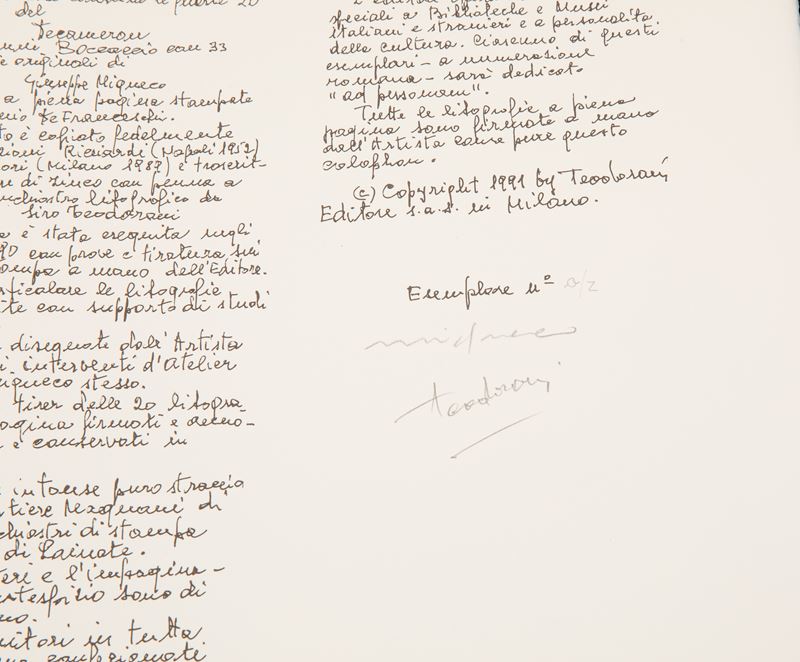 del
Decameron
Boccaccio con 33
originali di
Giuseppe Migneco
a piena pagina stampate
De Franceschi.
è copiato fedelmente
Ricciardi (Napoli 1952)
(Milano 1987) è trascrit-
di zinco con penna a
inchiostro litografico da
Siro Teodorani
è stata eseguita sugli
con prove e tiratura sui
a mano dell'Editore.
le litografie
con supporto di studi
disegnate dall'Artista
interventi d'atelier
stesso.
tirer delle 20 litogra-
firmati e
e conservati in
intonse puro straccio
Magnani di
inchiostri di stampa
di Lainate.
e l'impagina-
sono di
in tutta
speciali a Biblioteche e Musei
italiani e stranieri e a personalità
della cultura. Ciascuno di questi
esemplari - a numerazione
romana - sarà dedicato
"ad personam".
Tutte le litografie a piena
pagina sono firmate a mano
dall'Artista come pure questo
colophon.
(c) Copyright 1991 by Teodorani
Editore s.a.s. in Milano.
Esemplare nº
Migneco
Teodorani